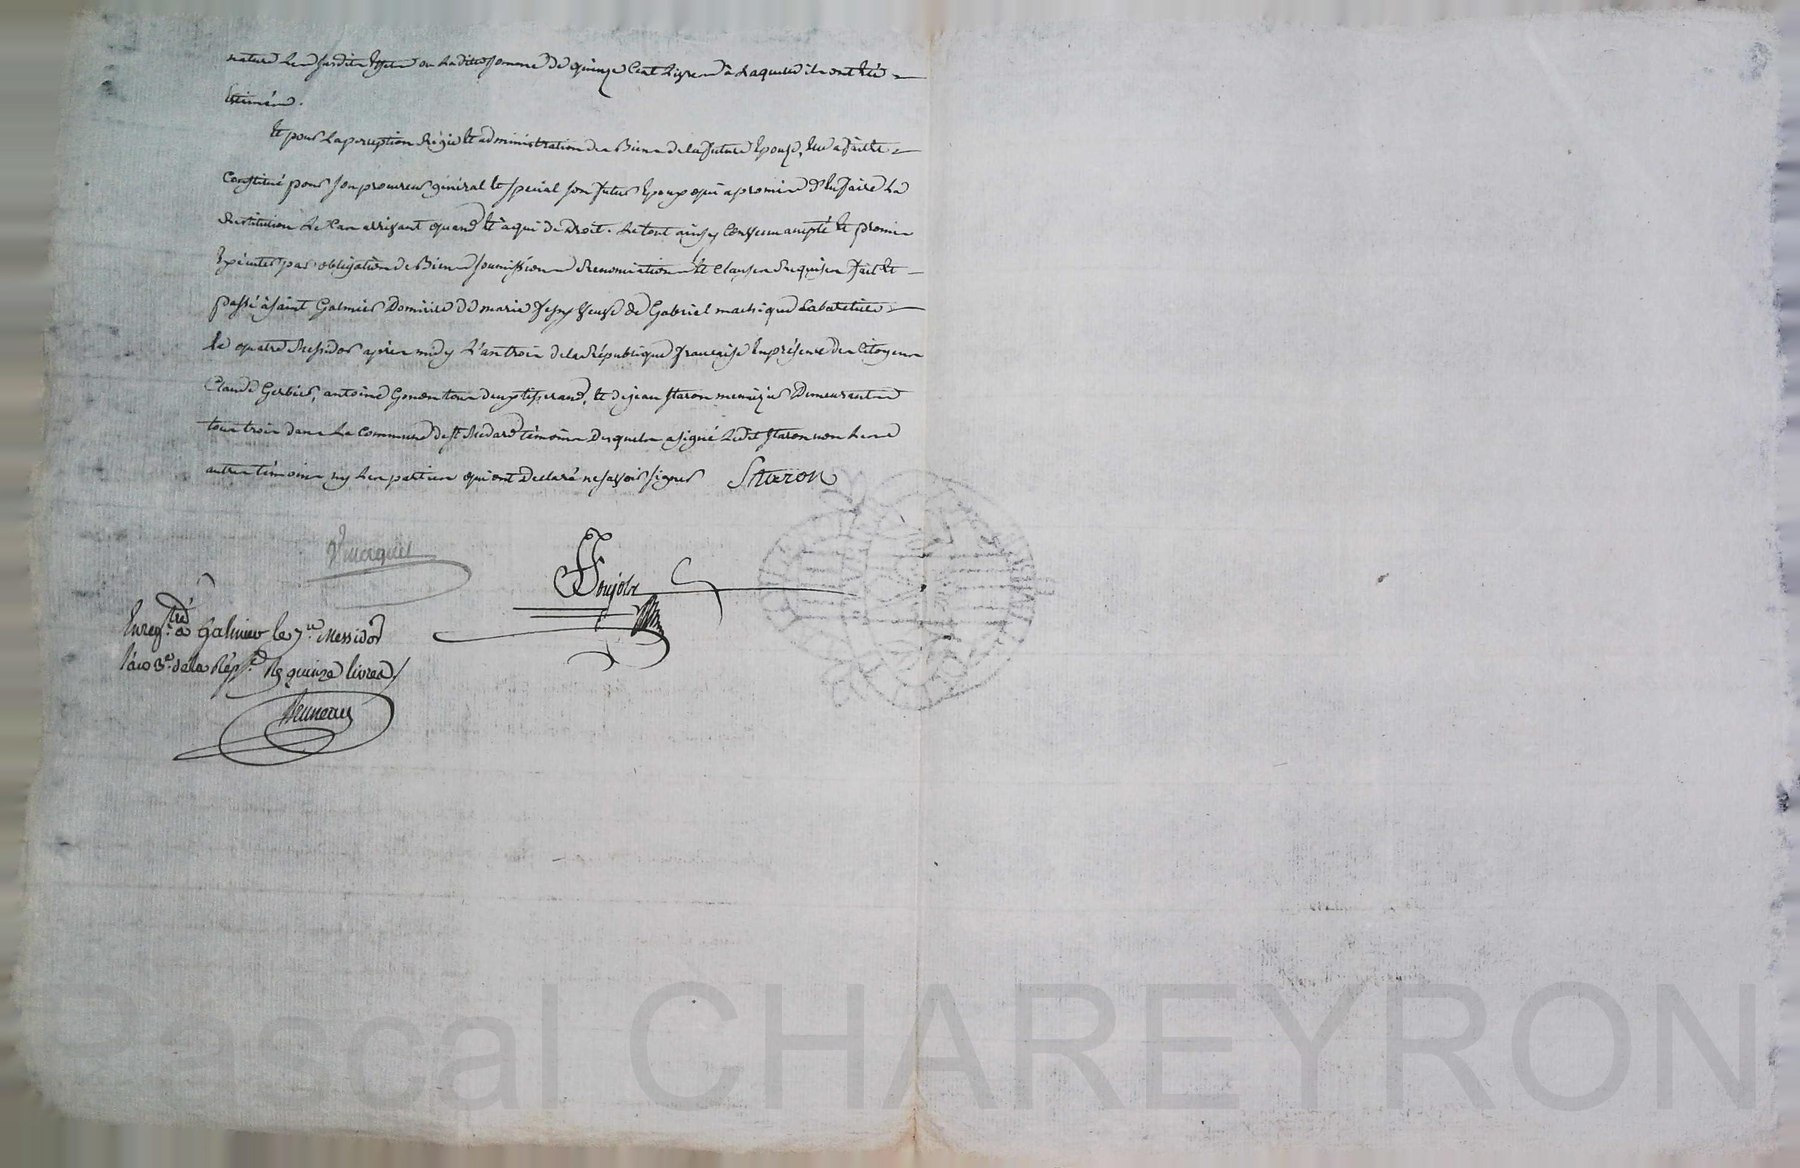 nature Les susdits Effets ou Laditte somme de quinze Cent Livres à Laquelle ils ont Eté
Estimées.
Et pour La perception Régie Et administration des Biens de la future Epouze, Elle a fait Et
Constitué pour son procureur général Et special son futur Epoux qui a promis d'En faire La
Restitution Le Cas arrivant quand Et à qui de Droit. Le tout ainsy Convenu accepté Et promis
Exécuter par obligation de Biens soumissions Renonciations Et Clauses Requises fait Et
passé à saint Galmier Domicile de marie veuve de Gabriel
le quatre Messidor après midy L'an trois de la République française En présence des Citoyens
Claude Gerbier, antoine Gonon tous deux tisserands, Et de jean Staron menuizier Demeurants
tous trois dans La Commune de St. Medard témoins Desquels a signé Ledit Staron non Les
autres témoins ny Les parties qui ont Declaré ne savoir signer Staron
Enregtré à Galmier le 7e. Messidor
l'an 3e. de la Rép. Rç quinze livres
Pascal CHAREYRON